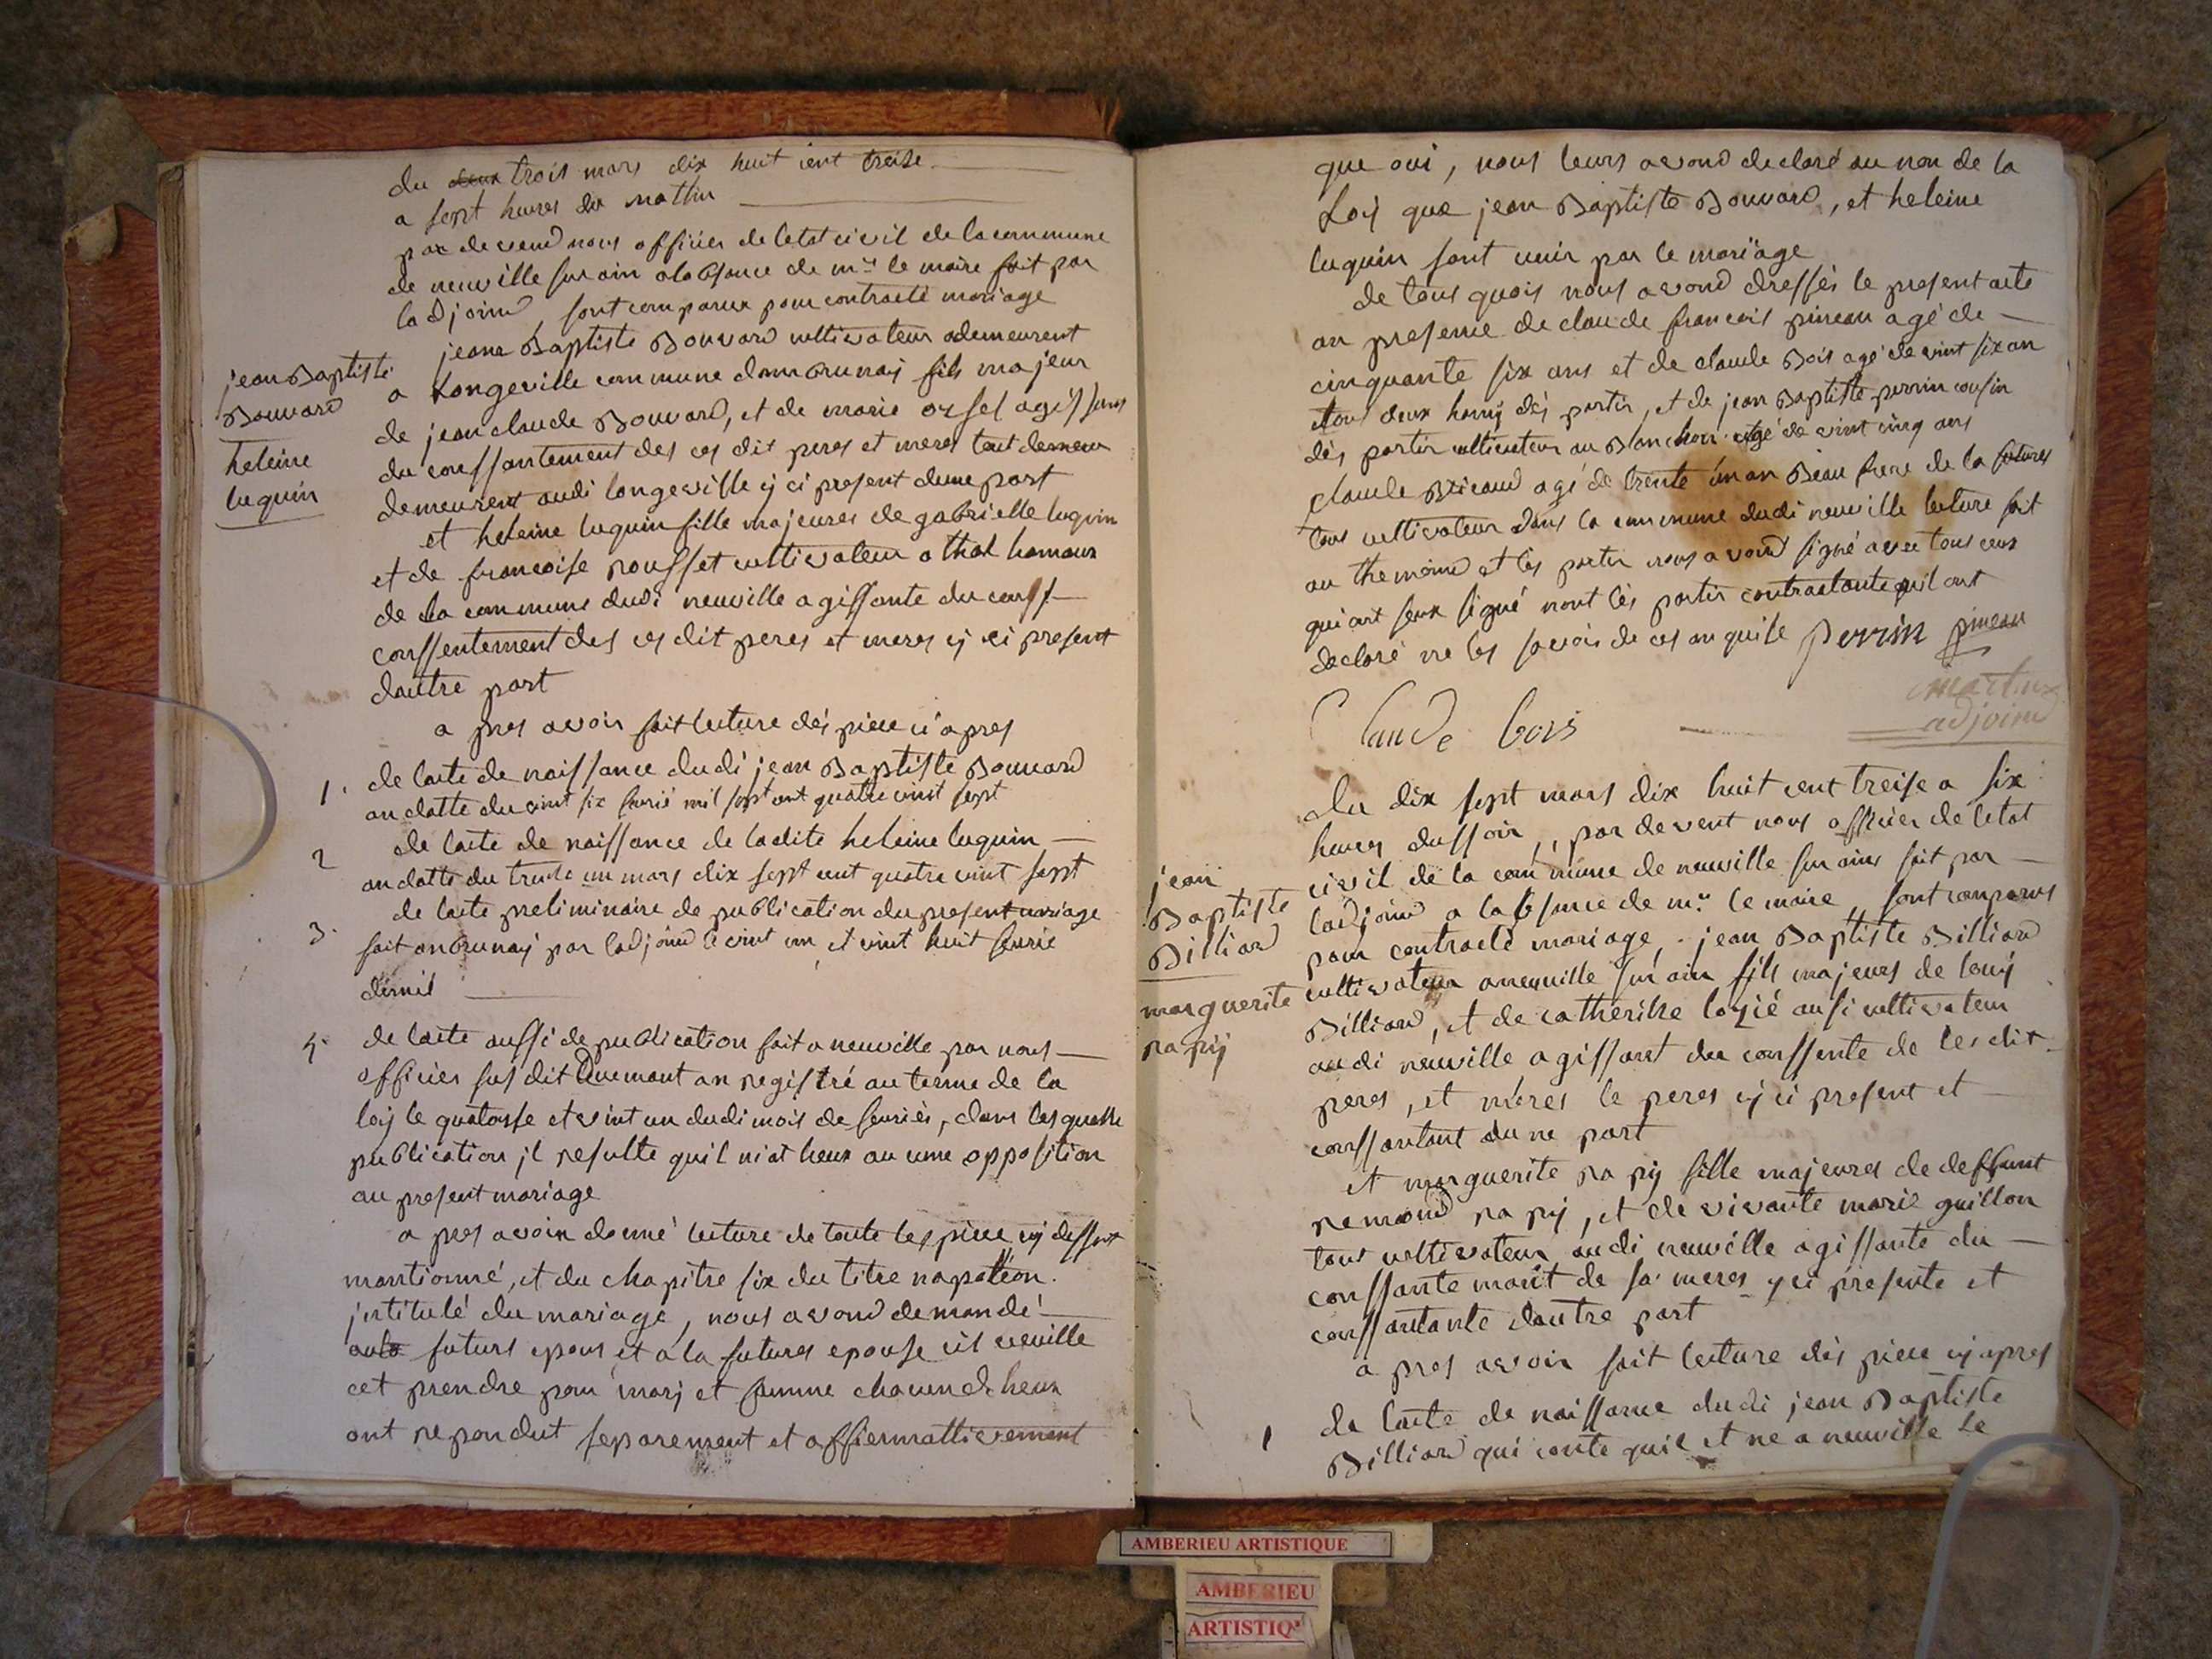 du deux trois mars dix huit cent treise
a sept heures du mattin
par devend nous officier de letat civil de la commune
de neuville sur ain alabsance de mr le maire fait par
ladjoind, sont comparux pour contracté mariage
jeane Baptiste Bouvard cultivateur ademeurent
jean Baptiste
Bouvard
heleine
luquin
a Longeville commune dambrunay fils majeur
de jean claude Bouvard, et de marie orset agissens
du conssantement des ces dit peres et meres tout
demeurent audi longeville cy ci present dune part
et heleine luquin fille majeures de gabrielle luquin
et de francoise pousset cultivateur a thol hamaux
de la commune dudi neuville agissante du conss
conssentement des ces dit peres et meres cy ci present
dautre part
a pres avoir fait lecture dés piece ci apres
1. de lacte de naissance dudi jean Baptiste Bouvard
an datte du vint six fevrié mil sept cent quatre vint sept
2 de lacte de naissance de ladite heleine luquin
an datte du trente un mars dix sept cent quatre vint sept
3. de lacte preliminaire de publication du present mariage
fait anbrunay par ladjoind le vint un et vint huit fevrié
dernié
4. de lacte aussi de publication fait a neuville par nous
officier sus dit Duemant an registré au terme de la
loy le quatorse et vint un dudi mois de fevrièr, dans les quelle
publication jl resulte quil niat heux au cune opposition
au present mariage
a pres avoir donné lecture de toute les piece cy dessus
mantionné, et du chapitre six du titre napoleon.
jntitulé du mariage, nous avond demandé
aula futurs epous et a la futures epouse cils veuille
cet prendre pour marj et famme chacun deheux
ont repondut separement et affiermattivement
que oui, nous leurs avond declaré au non de la
Loy que jean Baptiste Bouvard, et heleine
luquin sont unir par le mariage
de tous quois nous avond dressés le present acte
an presence de claude francois pineau agé de
cinquante six ans et de claude Bois agé de vint six an
tous deux hamy dés partir, et de jean Baptiste perrin cousin
dés partir cultivateur au Blanchon agé de vint cinq ans
claude Bricaud agé de trente un an Beau frere de la futures
tous cultivateur dans la commune dudi neuville lecture fait
au themoind et les partir nous avond signé avec tous ceux
qui ont seux signé nont lés partir contractante quil ont
declaré ne les savoir de ces an quise perrin pineau
Claude bois
martin
adjoind
du dix sept mars dix huit cent treise a six
heures dussoir, par devent nous officier de letat
jean
Baptiste
Billiard
marguerite
rapij
civil de la commune de neuville sur ains fait par
ladjoind a labsance de mr le maire, sont comparus
pour contracté mariage, jean Baptiste Billiard
cultivateur aneuville sur ain fils majeurs de louij
Billiard, et de cathérine lozié ausi cultivateur
audi neuville agissant du conssente de les dit
peres, et méres le peres cy ci present et
conssantant dune part
et marguerite rapij fille majeures de deffunt
remond rapij, et de vivante marie guillon
tous cultivateur audi neuville agissante du
conssante mant de sa meres cy ci presente et
conssantante dautre part
a pres avoir fait lecture dés piece cy apres
1 de lacte de naissance dudi jean Baptiste
Billiard qui conte quil et ne a neuville le
AMBERIEU ARTISTIQUE
AMBERIEU
ARTISTIQ